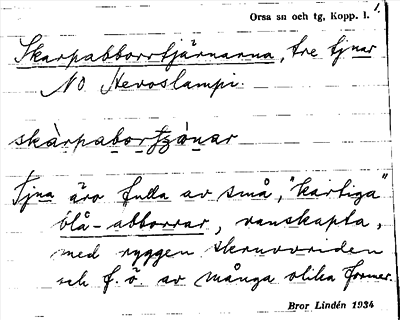 Orsa sn och tg, Kopp. l. 1.
Skarpabborrtjärnarna, tre tjnar
NO Hevoslampi.
skàrpabortjạ̈nar
Tjna äro fulla av små, "kartiga"
blå-abborrar, vanskapta,
med ryggen skruvvriden
och f. ö. av många olika former.
Bror Lindén 1934